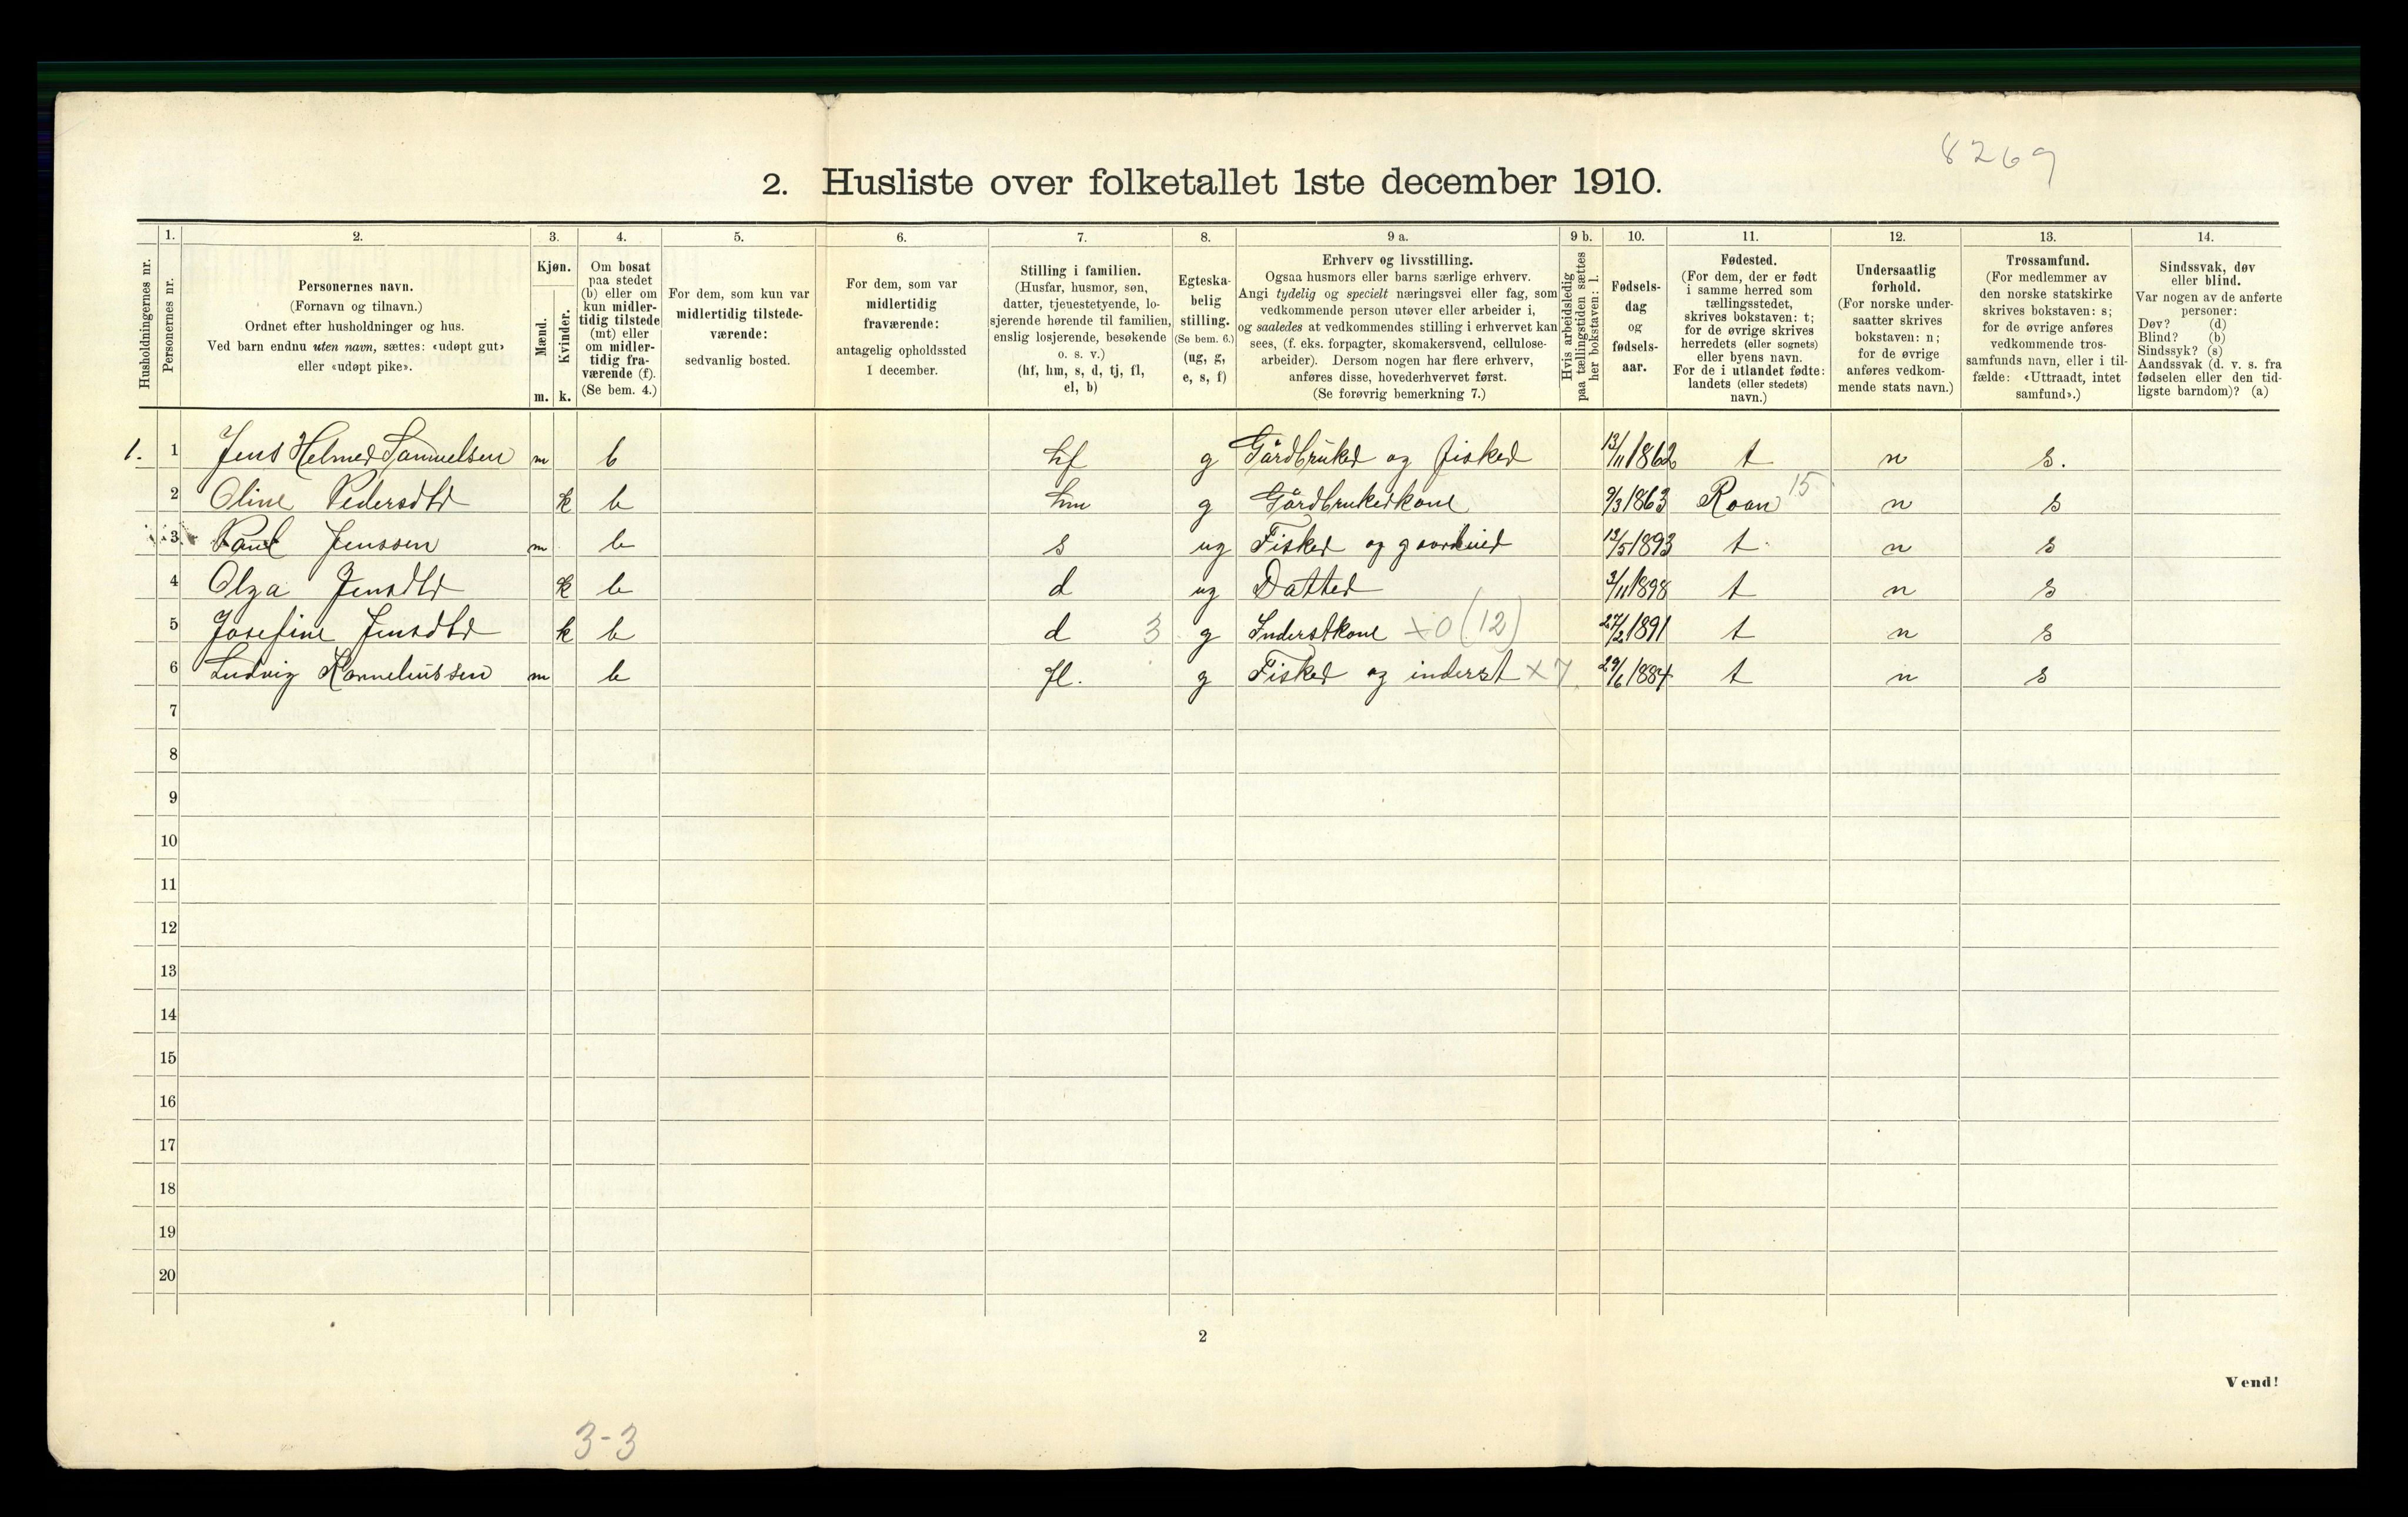 8269
2. Husliste over folketallet 1ste december 1910.
Husholdningernes nr.
1.
Personernes nr.
2.
Personernes navn.
(Fornavn og tilnavn.)
Ordnet efter husholdninger og hus.
Ved barn endnu uten navn, sættes: «udøpt gut»
eller «udøpt pike».
3.
Kjøn.
Mænd.
m.
Kvinder.
k.
4.
Om bosat
paa stedet
(b) eller om
kun midler-
tidig tilstede
(mt) eller
om midler-
tidig fra-
værende (f).
(Se bem. 4.)
5.
For dem, som kun var
midlertidig tilstede-
værende:
sedvanlig bosted.
6.
For dem, som var
midlertidig
fraværende:
antagelig opholdssted
1 december.
7.
Stilling i familien.
(Husfar, husmor, søn,
datter, tjenestetyende, lo-
sjerende hørende til familien,
enslig losjerende, besøkende
o. s. v.)
(hf, hm, s, d, tj, fl,
el, b)
8.
Egteska-
belig
stilling.
(Se bem. 6.)
(ug, g,
e, s, f)
9 a.
Erhverv og livsstilling.
Ogsaa husmors eller barns særlige erhverv.
Angi tydelig og specielt næringsvei eller fag, som
vedkommende person utøver eller arbeider i,
og saaledes at vedkommendes stilling i erhvervet kan
sees, (f. eks. forpagter, skomakersvend, cellulose-
arbeider). Dersom nogen har flere erhverv,
anføres disse, hovederhvervet først.
(Se forøvrig bemerkning 7.)
9 b.
Hvis arbeidsledig
paa tællingstiden sættes
her bokstaven: l.
10.
Fødsels-
dag
og
fødsels-
aar.
11.
Fødested.
(For dem, der er født
i samme herred som
tællingsstedet,
skrives bokstaven: t;
for de øvrige skrives
herredets (eller sognets)
eller byens navn.
For de i utlandet fødte:
landets (eller stedets)
navn.)
12.
Undersaatlig
forhold.
(For norske under-
saatter skrives
bokstaven: n;
for de øvrige
anføres vedkom-
mende stats navn.)
13.
Trossamfund.
(For medlemmer av
den norske statskirke
skrives bokstaven: s;
for de øvrige anføres
vedkommende tros-
samfunds navn, eller i til-
fælde: «Uttraadt, intet
samfund».)
14.
Sindssvak, døv
eller blind.
Var nogen av de anførte
personer:
Døv? (d)
Blind? (b)
Sindssyk? (s)
Aandssvak (d. v. s. fra
fødselen eller den tid-
ligste barndom)? (a)
1. 1 Jens Helmer Samuelsen m b hf g Gårdbruker og fisker 13/11 1862 t n s.
2 Oline Pedersdtr k b hm g Gårdbrukerkone 9/3 1863 Roan 15 n s
3 Paul Jenssen m b s ug Fisker og 13/5 1893 t n s
4 Olga Jensdtr k b d ug Datter 3/11 1898 t n s
5 Josefine Jensdtr k b d 3 g Inderstkone x0 (12) 27/2 1891 t n s
6 Ludvig Korneliussen m b fl. g Fisker og inderst x7 29/6 1884 t n s
7
8
9
10
11
12
13
14
15
16
17
18
19
20
2
Vend!
3-3